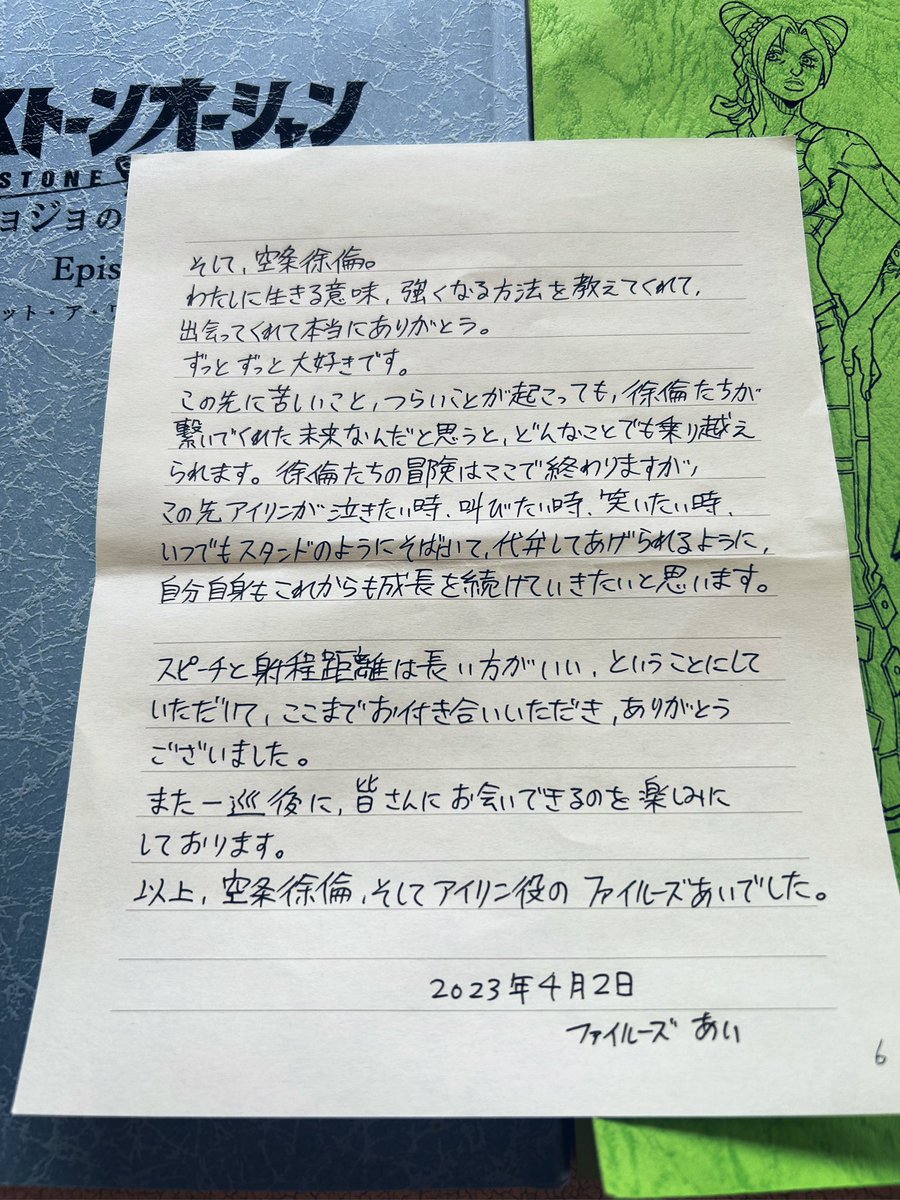 ストーンオーシャン
STONE
ョジョの
Epis
ット・ア・
そして、空条徐倫。
わたしに生きる意味、強くなる方法を教えてくれて、
出会ってくれて本当にありがとう。
ずっとずっと大好きです。
この先に苦しいこと、つらいことが起こっても、徐倫たちが
繋いでくれた未来なんだと思うと、どんなことでも乗り越え
られます。徐倫たちの冒険はここで終わりますが、
この先アイリンが泣きたい時、叫びたい時、笑いたい時、
いつでもスタンドのようにそばにいて、代弁してあげられるように、
自分自身もこれからも成長を続けていきたいと思います。
スピーチと射程距離は長い方がいい、ということにして
いただけて、ここまでお付き合いいただき、ありがとう
ございました。
また一巡後に、皆さんにお会いできるのを楽しみに
しております。
以上、空条徐倫、そしてアイリン役の ファイルーズあいでした。
2023年4月2日
ファイルーズ あい
6